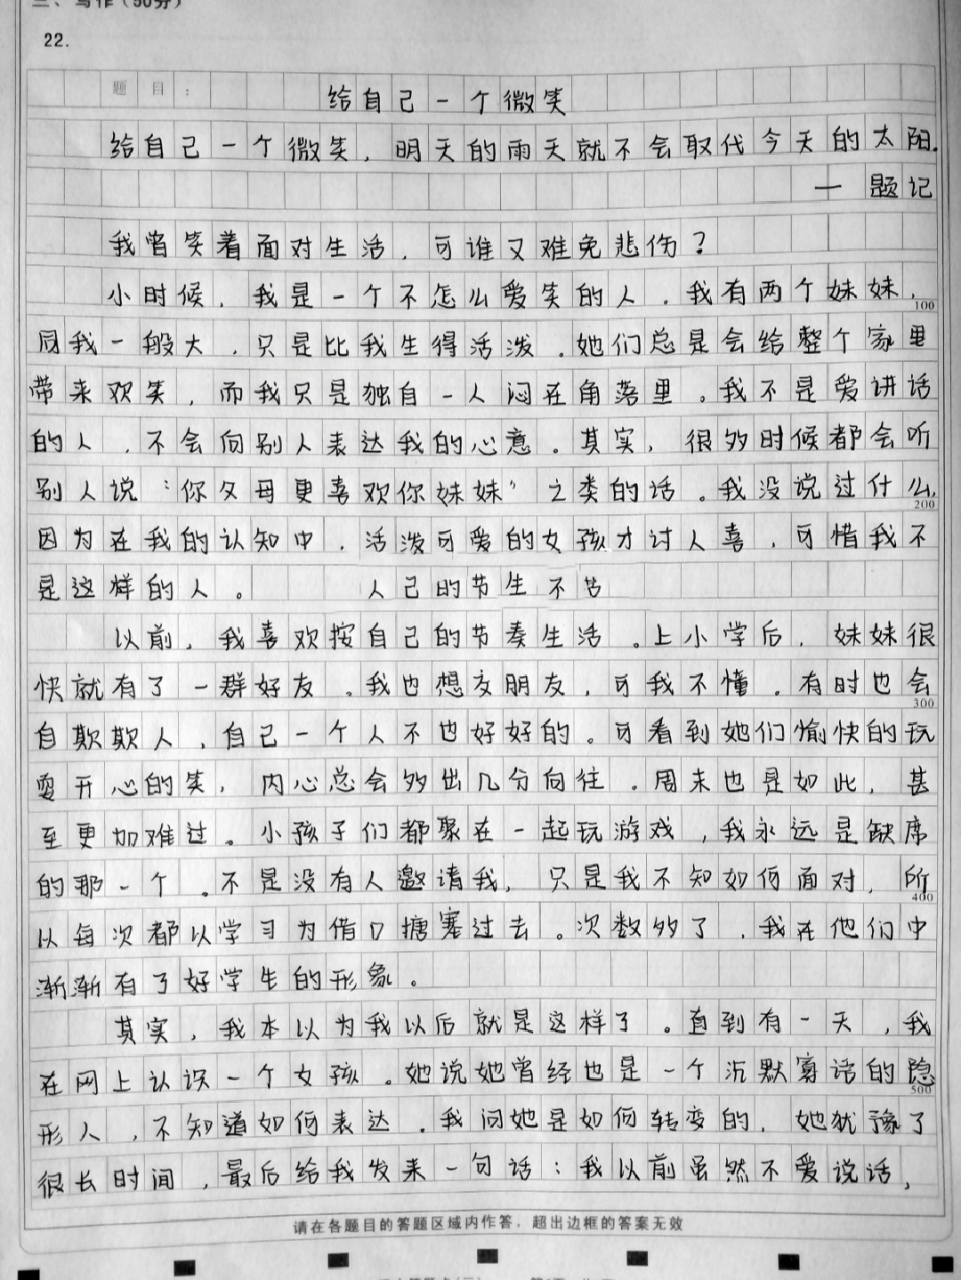 三、写作(50分)
22.
题目: 给自己一个微笑
给自己一个微笑,明天的雨天就不会取代今天的太阳.
— 题记
我曾笑着面对生活,可谁又难免悲伤?
小时候,我是一个不怎么爱笑的人.我有两个妹妹,
100
同我一般大,只是比我生得活泼.她们总是会给整个家里
带来欢笑,而我只是独自一人闷在角落里。我不是爱讲话
的人,不会向别人表达我的心意。其实,很多时候都会听
别人说:“你父母更喜欢你妹妹”之类的话。我没说过什么,
200
因为在我的认知中,活泼可爱的女孩才讨人喜,可惜我不
是这样的人。 人己的节生不节
以前,我喜欢按自己的节奏生活。上小学后,妹妹很
快就有了一群好友。我也想交朋友,可我不懂.有时也会
300
自欺欺人,自己一个人不也好好的。可看到她们愉快的玩
耍开心的笑,内心总会多出几分向往.周末也是如此,甚
至更加难过。小孩子们都聚在一起玩游戏,我永远是缺席
的那一个.不是没有人邀请我,只是我不知如何面对,所
400
以每次都以学习为借口搪塞过去。次数多了,我在他们中
渐渐有了好学生的形象。
其实,我本以为我以后就是这样了。直到有一天,我
在网上认识一个女孩.她说她曾经也是一个沉默寡话的隐
500
形人,不知道如何表达.我问她是如何转变的,她犹豫了
很长时间,最后给我发来一句话:我以前虽然不爱说话,
请在各题目的答题区域内作答,超出边框的答案无效